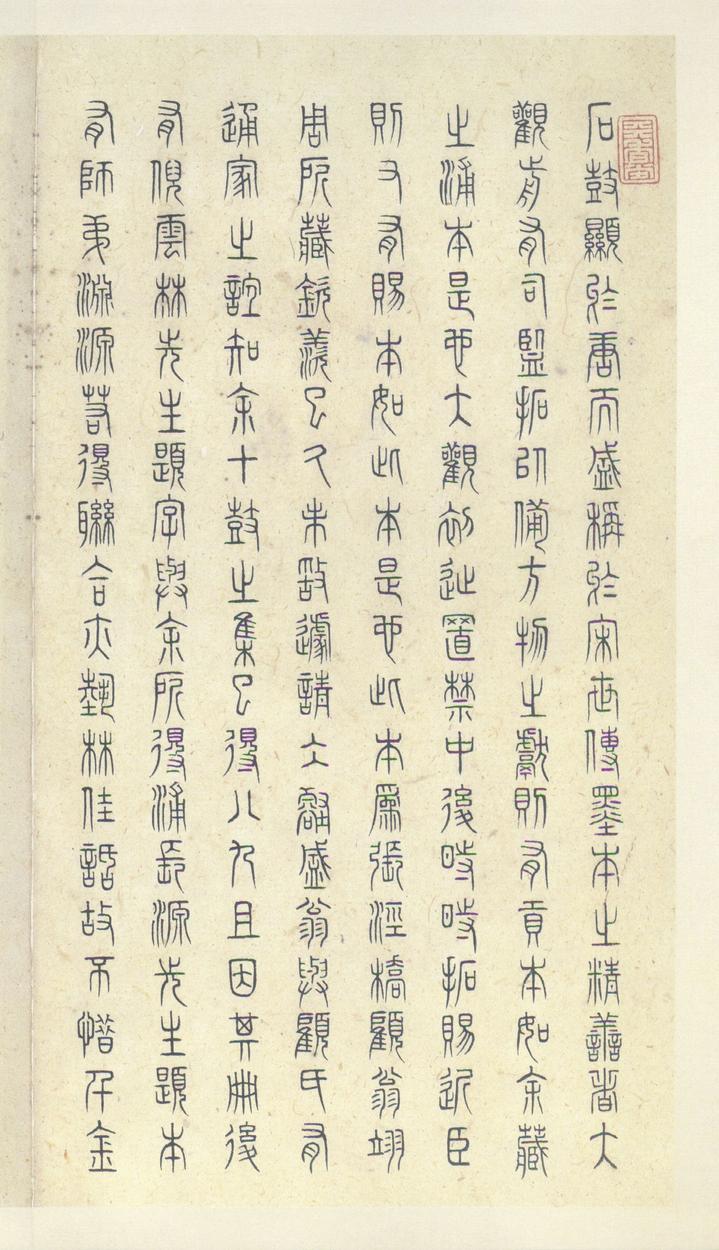 石鼓顯於唐而盛稱於宋世傳墨本之精善者大
觀前有司監拓以備方物之獻則有貢本如余藏
之浦本是也大觀初徙置禁中後時時拓賜近臣
則又有賜本如此本是也此本為張涇橋顧翁翊
周所藏欽羨已久未敢遽請今盛翁與顧氏有
通家之誼知余十鼓之集已得八九且因其冊後
有倪雲林先生題字與余所得浦長源先生題本
有師弟淵源若得聯合亦藝林佳話故不惜千金